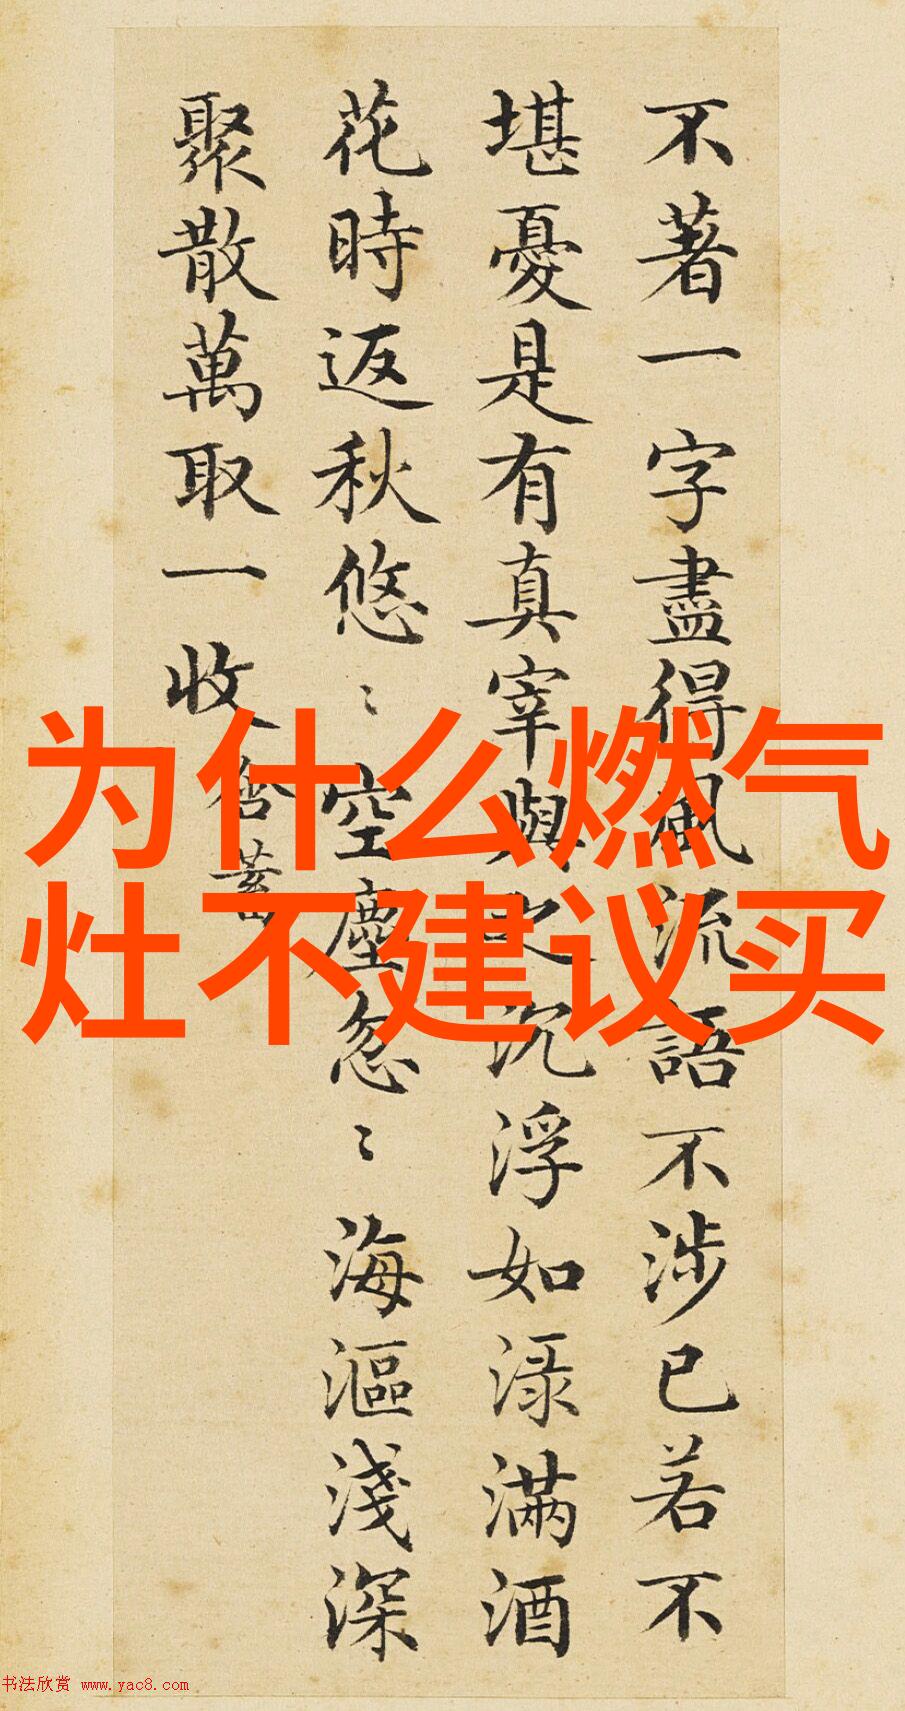 不著一字盡得風流語不涉已若不
堪憂是有真宰與之沉浮如渌滿酒
花時返秋悠〻空塵忽〻海漚淺深
聚散萬取一收 含蓄
为什么燃气
灶不建议买
书法欣赏 www.yac8.com